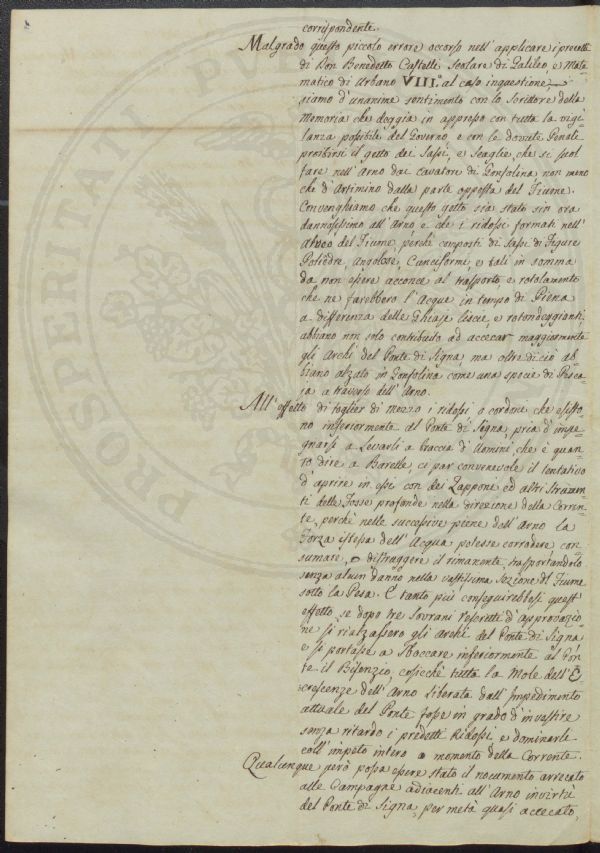 corrispondente.
Malgrado questo piccolo errore occorso nell'applicare i precetti
di Don Benedetto Castelli Scolare di Galileo, e Mate=
matico di Urbano VIII.° al caso inquestione,
siamo d'unanime sentimento con lo Scrittore della
Memoria che deggia in appresso con tutta la vigi=
lanza possibile del Governo, e con le dovute Penali
proibirsi il getto dei Sassi, e Scaglie, che si suol
fare nell'Arno dai cavatori di Gonfolina, non meno
che d'Artimino dalla parte opposta del Fiume.
Convenghiamo che questo getto sia stato sin ora
dannosissimo all'Arno, e che i ridossi formati nell'
Alveo del Fiume, perchè composti di Sassi di Figure
Poliedre, Angolose, Cuneiformi, e tali in somma
da non essere acconce al trasporto, e rotolamento
che ne farebbero l'Acque in tempo di Piena
a differenza delle Ghiaje liscie, e rotondeggianti,
abbiano non solo contribuito ad accecar maggiormente
gli Archi del Ponte di Signa, ma oltre diciò ab=
biano alzato in Gonfolina come una specie di Pesca=
ja a traverso dell'Arno.
All'effetto di toglier di mezzo i ridossi, o cordoni che esisto=
no inferiormente al Ponte di Signa, pria d'impe=
gnarsi a Levarli a braccia d'Uomini, che è quan=
to dire a Barelle, ci par convenevole il tentativo
d'aprire in essi con dei Zapponi ed altri Strumen=
ti delle Fosse profonde nella direzione della Corren=
te, perchè nelle successive piene dell'Arno la
Forza istessa dell'Acqua potesse corrodere, con=
sumare, e distruggere il rimanente, trasportandolo
senza alcun danno nella vastissima Sezione del Fiume
sotto la Pesa. E tanto più conseguirebbesi quest'
effetto, se dopo tre Sovrani Rescritti d'approvazio=
ne si rialzassero gli Archi del Ponte di Signa,
e si portasse a Sboccare inferiormente al Pon=
te il Bisenzio, cosicchè tutta la Mole dell'E=
screscenze dell'Arno liberata dall'Impedimento
attuale del Ponte fosse in grado d'investire
senza ritardo i predetti Ridossi, e dominarli
coll'impeto intero o momento della Corrente.
Qualunque però possa essere stato il nocumento arrecato
alle Campagne adiacenti all'Arno invirtù
del Ponte di Signa, per metà quasi accecato,